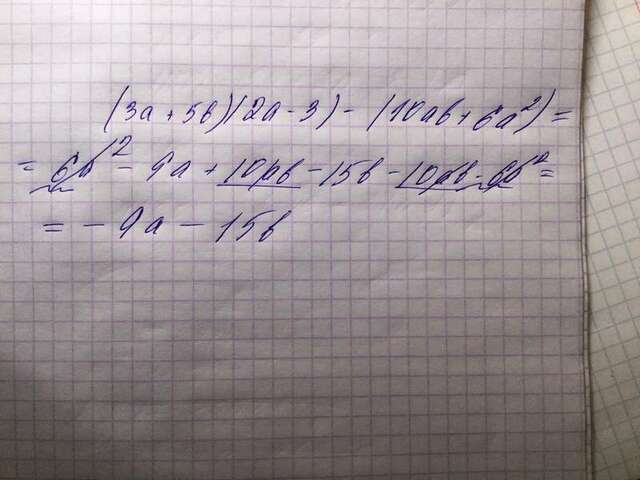 (3a + 5b)(2a - 3) - (10ab + 6a²) =
= 6a² - 9a + 10ab - 15b - 10ab - 6a² =
= - 9a - 15b